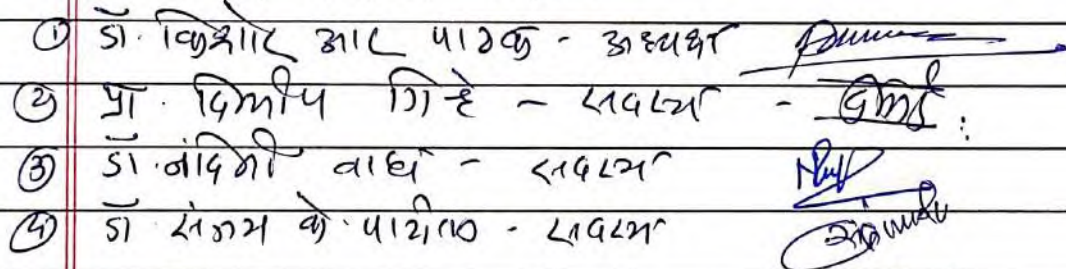 ① डॉ. किशोर आर पाठक - अध्यक्ष
② प्रा. दिलीप गिऱ्हे - सदस्य -
③ डॉ. नंदिनी वाघ - सदस्य
④ डॉ संजय के. पाटील - सदस्य